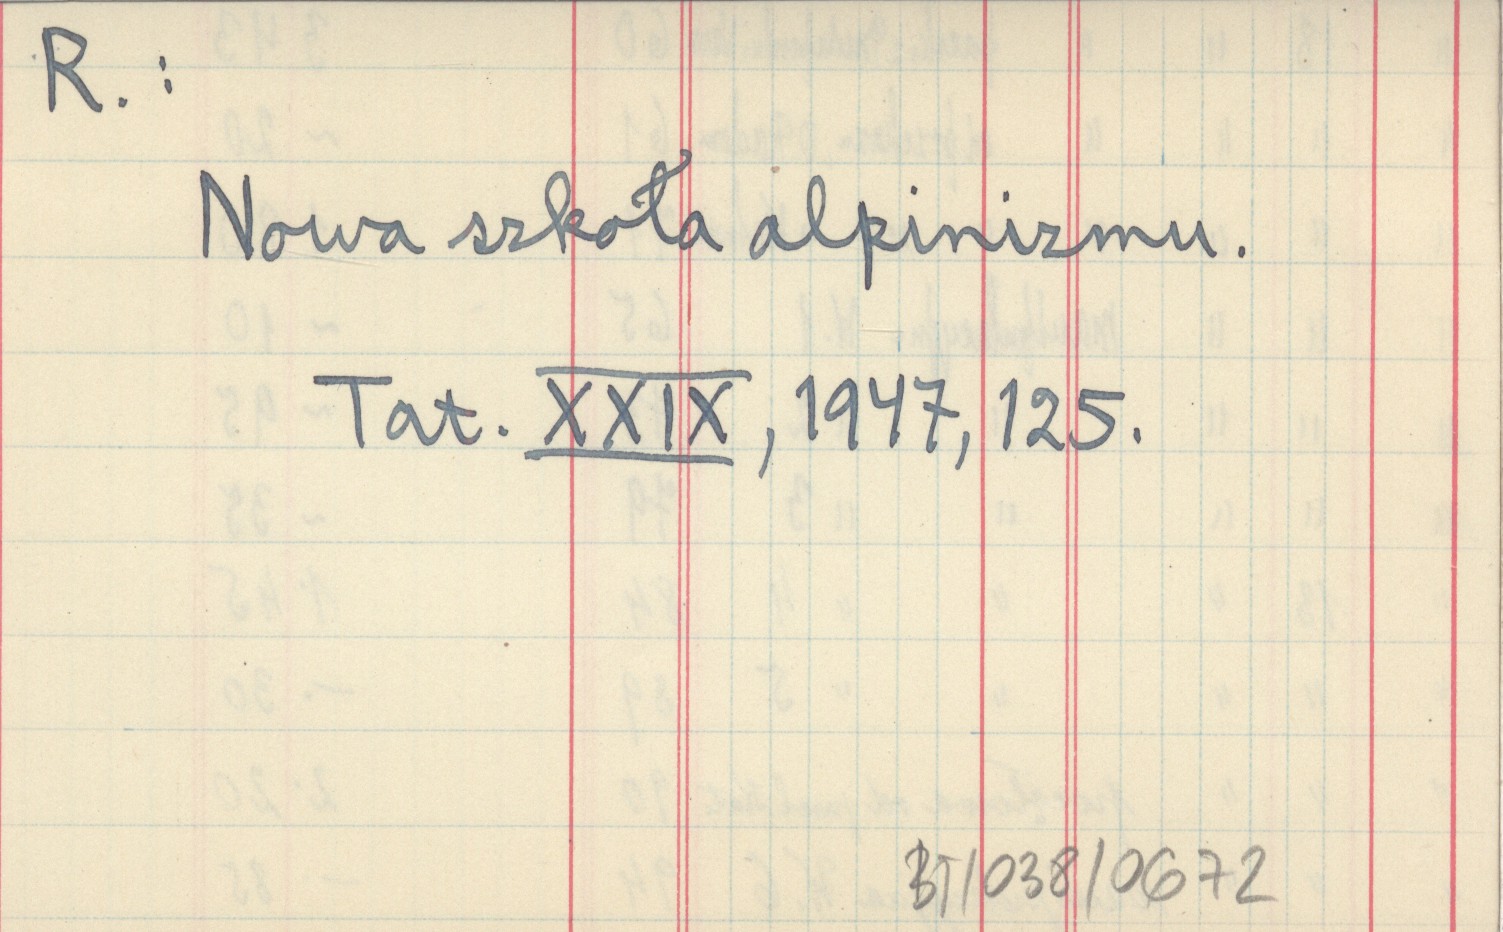 R.:
Nowa szkoła alpinizmu.
Tat. XXIX, 1947, 125.
BT/038/0672